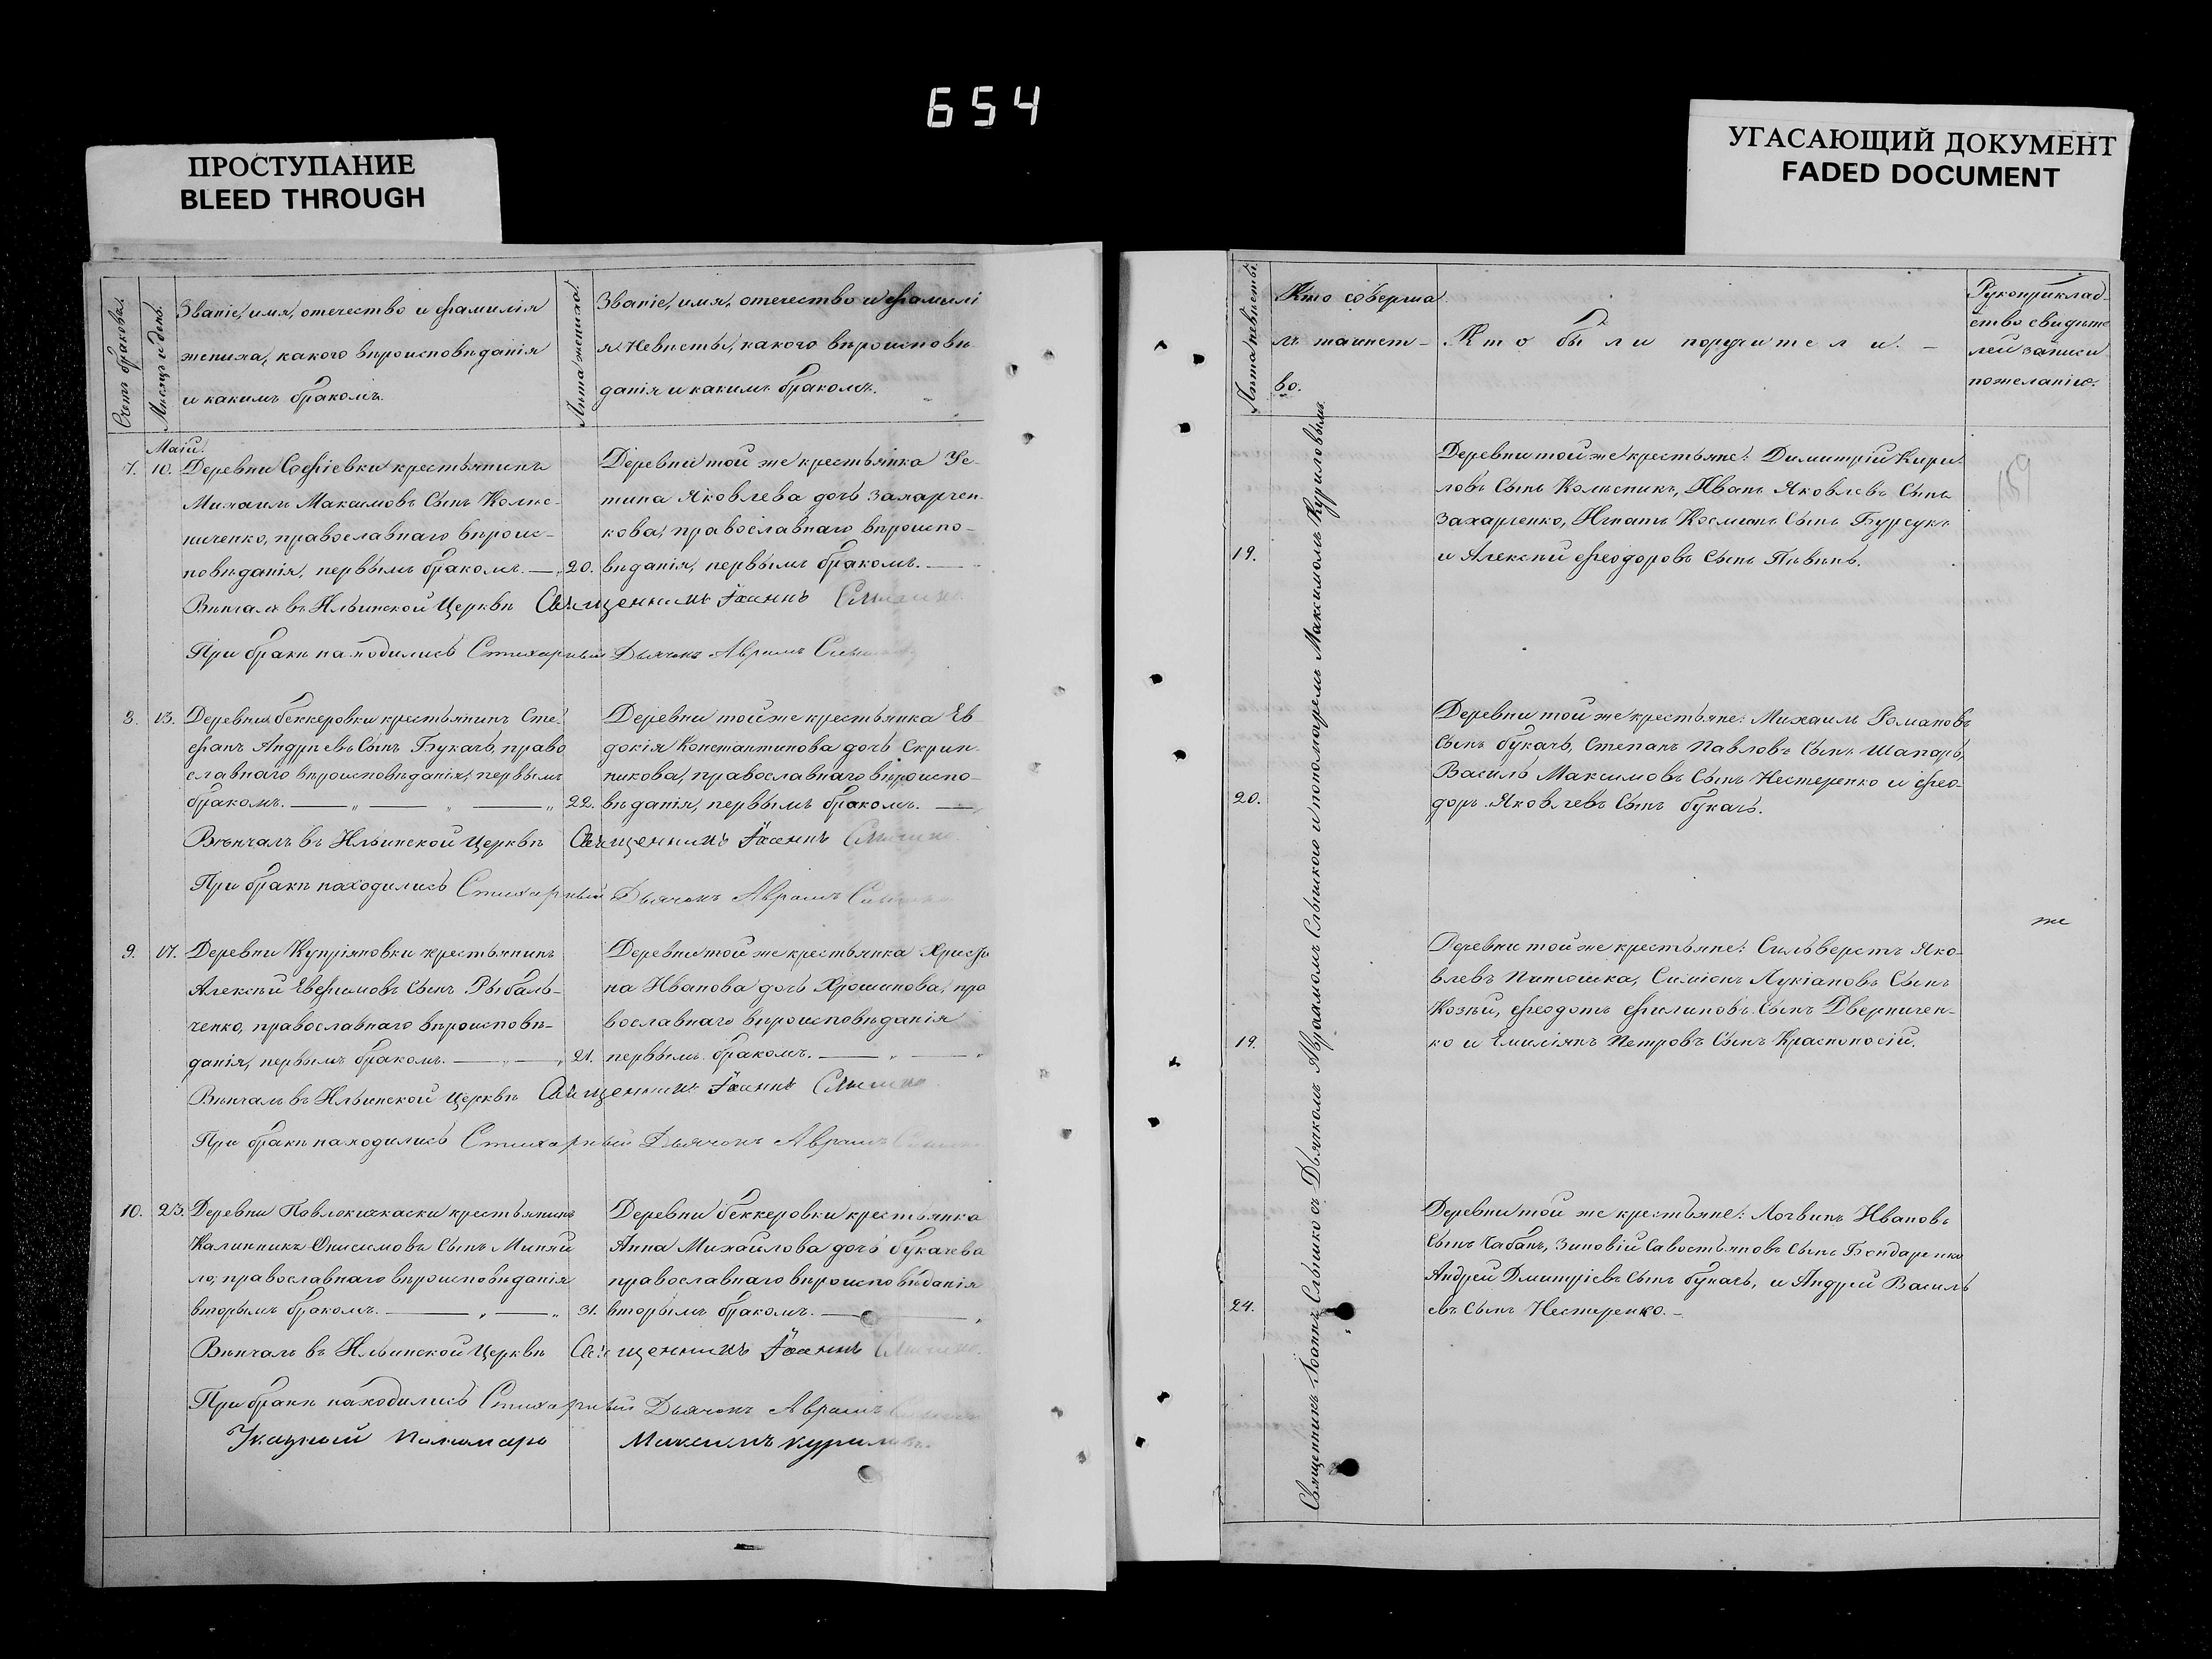 654
ПРОСТУПАНИЕ
BLEED THROUGH
УГАСАЮЩИЙ ДОКУМЕНТ
FADED DOCUMENT
Счетъ браковъ.
Мѣсяцъ и день.
Званіе, имя, отечество и фамилія
жениха, какого вѣроисповѣданія
и какимъ бракомъ.
Лѣта жениха.
Званіе, имя, отечество и фамилі
я Невѣсты, какого вѣроисповѣ
данія и какимъ бракомъ.
Маій.
7. 10. Деревни Софіевки крестьянинъ
Михаилъ Максимовъ Сынъ Колѣс-
ниченко, православнаго вѣроис-
повѣданія, первымъ бракомъ. — 20.
Деревни той же крестьянка Ус-
тина Яковлева дочь Захарчен-
кова, православнаго вѣроиспо-
вѣданія, первымъ бракомъ. —
Вѣнчалъ въ Ильинской Церквѣ Священникъ Іоаннъ
При бракѣ находились Стихарный Дьячокъ Аврамъ
8. 13. Деревни Беккеровки крестьянинъ Сте
фанъ Андрѣевъ Сынъ Букачъ, право
славнаго вѣроисповѣданія, первымъ
бракомъ. — „ — „ — „ 22.
Деревни той же крестьянка Ев
докія Константинова дочь Скрип-
никова, православнаго вѣроиспо-
вѣданія, первымъ бракомъ. —
Вѣнчалъ въ Ильинской Церквѣ Священникъ Іоаннъ
При бракѣ находились Стихарный Дьячокъ Аврамъ
9. 17. Деревни Купріяновки крестьянинъ
Алексѣй Евфимовъ Сынъ Рыбаль-
ченко, православнаго вѣроисповѣ-
данія, первымъ бракомъ. — „ — „ 21.
Деревни той же крестьянка
на Иванова дочь Хрошинова, пра
вославнаго вѣроисповѣданія
первымъ бракомъ. — „ — „
Вѣнчалъ въ Ильинской Церквѣ Священникъ Іоаннъ
При бракѣ находились Стихарный Дьячокъ Аврамъ
10. 23. Деревни Павлокичкаски крестьянинъ
Калинникъ Онисимовъ Сынъ Миняй
ло, православнаго вѣроисповѣданія
вторымъ бракомъ. — „ — „ 31.
Деревни Беккеровки крестьянка
Анна Михайлова дочь Букачева
православнаго вѣроисповѣданія
вторымъ бракомъ. —
Вѣнчалъ въ Ильинской Церквѣ Священникъ Іоаннъ
При бракѣ находились Стихарный Дьячокъ Аврамъ
Указный Пономарь Максимъ Куриловъ
Лѣта невѣсты.
Кто соверша
лъ таинст-
во.
Кто были поручители. —
Рукоприклад-
ство свидѣте
лей записи
по желанію.
Священникъ Іоаннъ Слышко съ Дьячкомъ Авраамомъ Слышкого и пономаремъ Максимомъ Куриловымъ.
19.
Деревни той же крестьяне: Димитрій Кири-
ловъ Сынъ Колѣсникъ, Иванъ Яковлевъ Сынъ
Захарченко, Игнатъ Косминъ Сынъ Бурсукъ
и Алексѣй Феодоровъ Сынъ Пивень.
159
20.
Деревни той же крестьяне: Михаилъ Романовъ
Сынъ Букачъ, Степанъ Павловъ Сынъ Шапарь,
Василь Максимовъ Сынъ Нестеренко и Фео-
доръ Яковлевъ Сынъ Букачъ.
же
19.
Деревни той же крестьяне: Сильверстъ Яко-
влевъ Симіонъ Лукіановъ Сынъ
Козѣй, Феодотъ Филиповъ Сынъ Дверничен-
ко и Емиліянъ Петровъ Сынъ Красноносій.
24.
Деревни той же крестьяне: Логвинъ Ивановъ
Сынъ Чабанъ, Зиновій Савостьяновъ Сынъ Бондаренко
Андрей Дмитріевъ Сынъ Букачъ, и Андрей Василь
евъ Сынъ Нестеренко. —